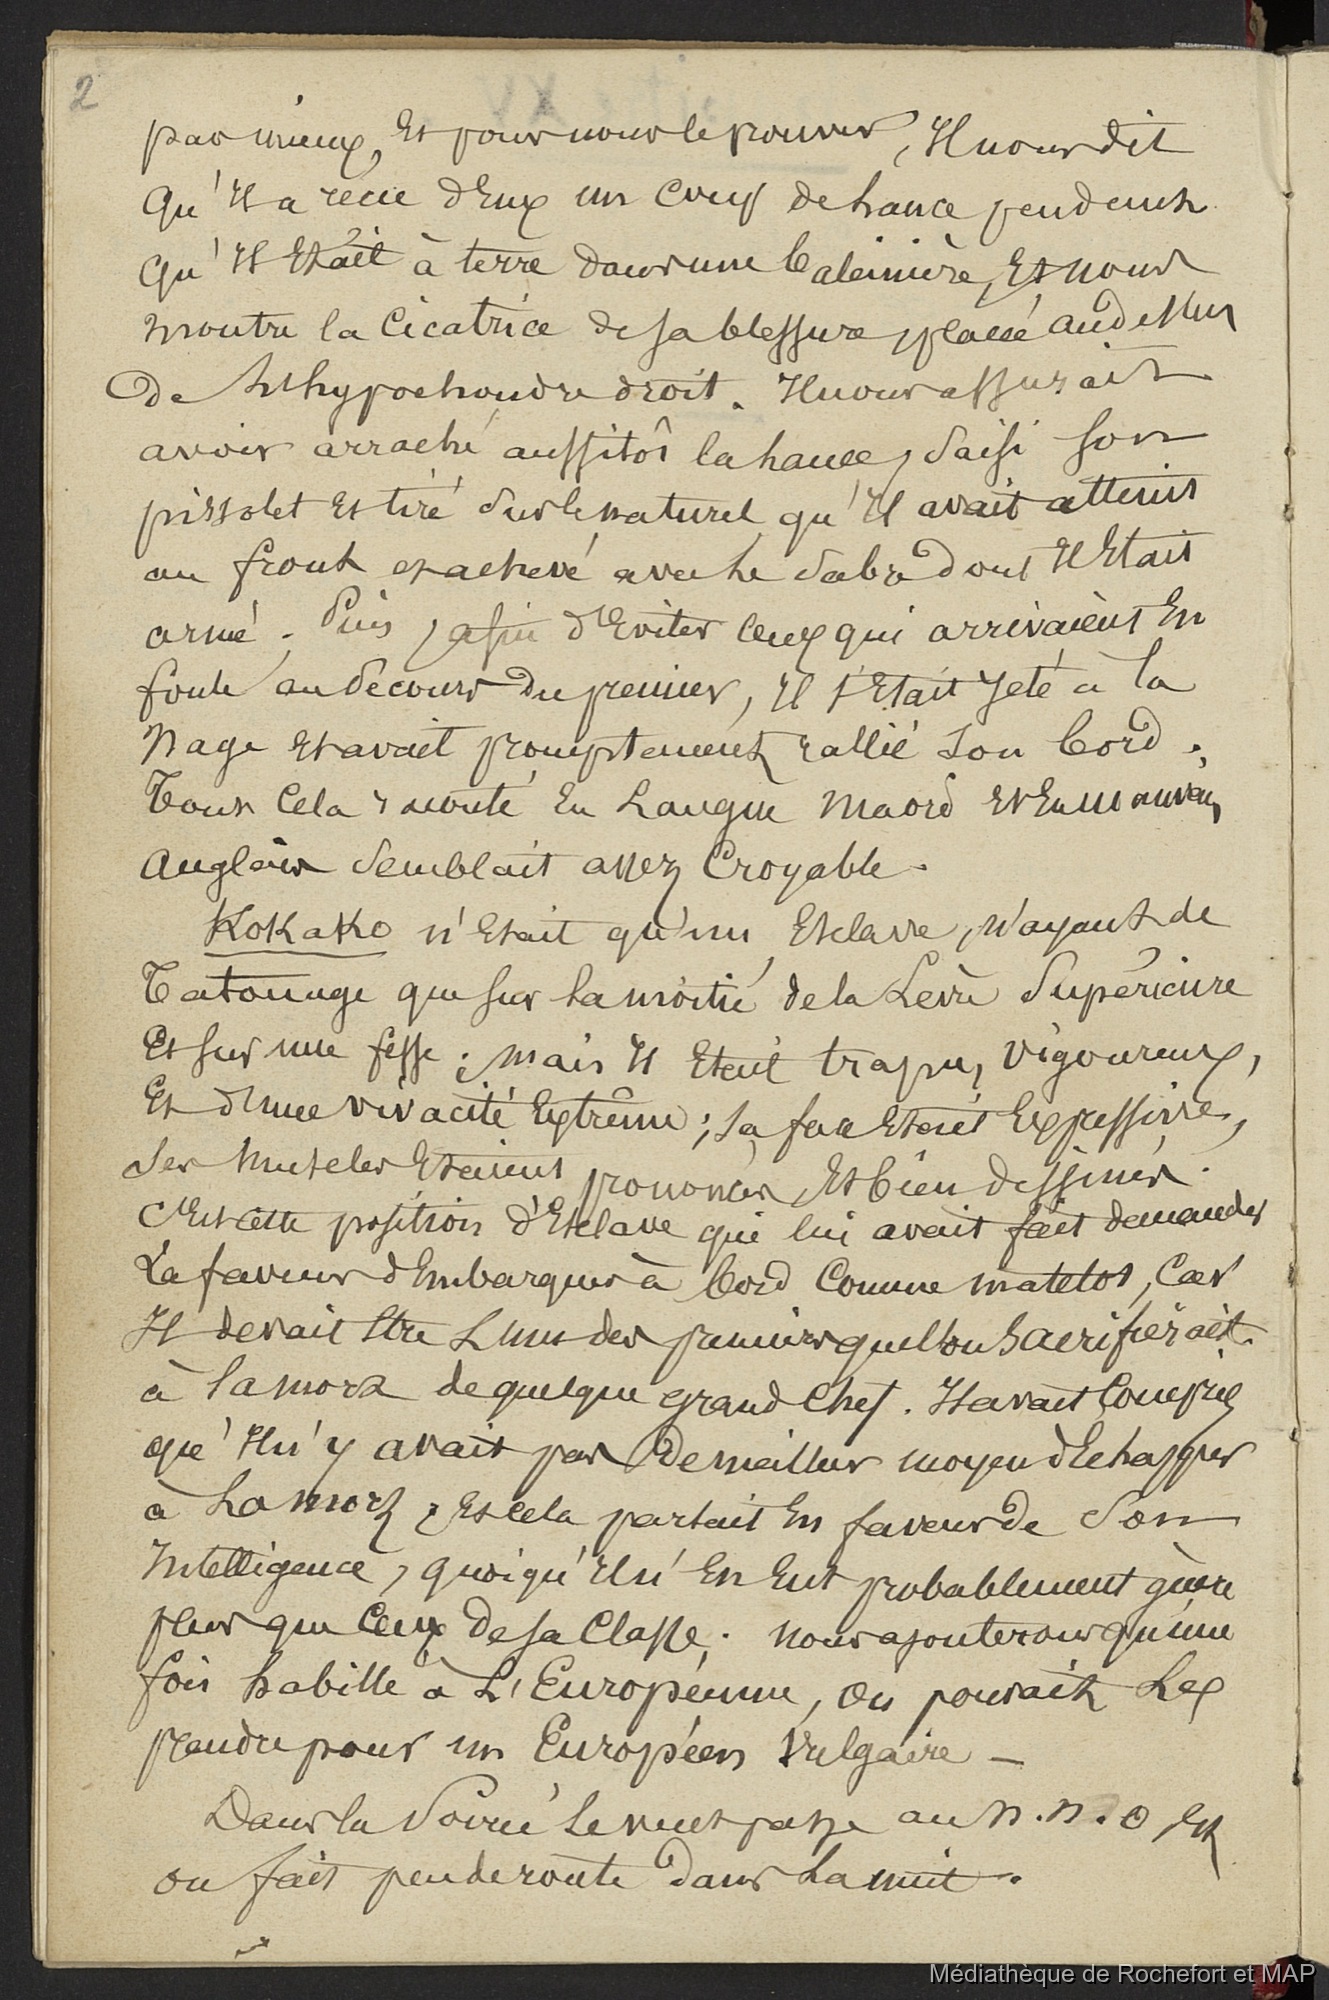 2
pas mieux, Et pour nous le prouver, Il nous dit
qu'Il a récue d'Eux un coup de hance pendent
qu'Il Etait à terre dans une baleinière, Et nous
montre la Cicatrice de sa blessure, placée au dessus
de L'hypochondre droit. Il nous assurait
avoir arraché aussitôt la hance, Saisi Son
pistolet Et tiré Sur le naturel qu'Il avait atteint
au front et achevé avec Le Sabre dont Il Etait
armé. Puis, afin d'Eviter Ceux qui arrivaient En
foule au Secours du premier, Il s'Etait Jeté à la
Nage Et avait promptement rallié Son bord.
Tout Cela raconté En Langue Maori Et En mauvais
Anglais Semblait assez Croyable.
Kokako n'Etait qu'un Esclave, N'ayant de
Tatouage que sur La moitié de la Levre Supérieure
Et sur une fesse; mais Il Etait trapu, Vigoureux,
Et d'une vivacité Extrême; Sa face Etait Expressive,
Ses Muscles Etaient prononcés, Et bien dessinés.
C'Est cette position d'Esclave qui lui avait fait demander
La faveur d'Embarquer à bord Comme matelot, Car
Il devait Etre L'un des premiers que l'on Sacrifierait
à la mort de quelque grand Chef. Il avait Compris
qu'Il n'y avait pas de meilleur moyen d'Echapper
à La mort, Et cela partait En faveur de Son
Intelligence, quoiqu'Il n'En Eut probablement guère
plus que Ceux de sa Classe. Nous ajouterons qu'une
fois habillé à L'Européenne, On pouvait Les
prendre pour un Européen Vulgaire —
Dans la Soirée Le vent passe au N.N.O Et
on fait peu de route dans La nuit.
Médiathèque de Rochefort et MAP